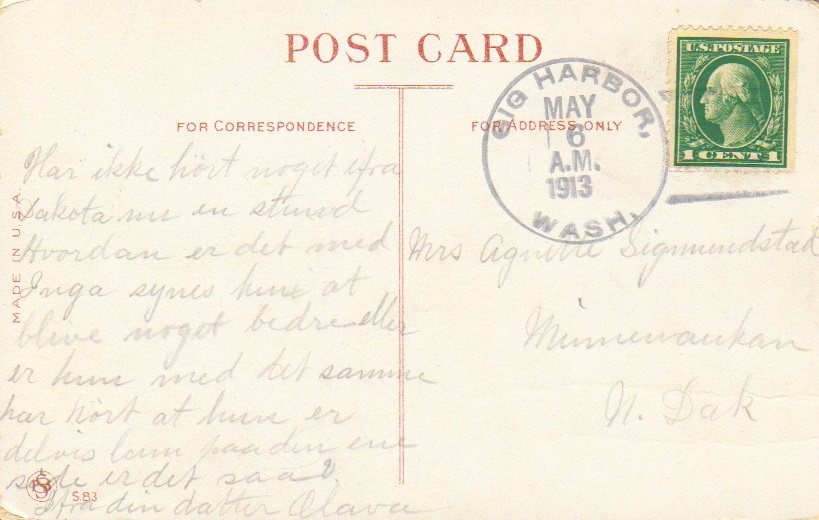 POST CARD
FOR CORRESPONDENCE
FOR ADDRESS ONLY
MADE IN U.S.A.
U.S. POSTAGE
1 CENT 1
GIG HARBOR,
MAY
6
A.M.
1913
WASH.
Har ikke hört noget ifra
Dakota nu en stund
Hvordan er det med
Inga synes hun at
blive noget bedre eller
er hun med det samme
har hört at hun er
delvis lam paa den ene
side er det saa?
Ifra din datter Olava
S.83
Mrs Agnethe Sigmundstad
Minnewaukan
N. Dak